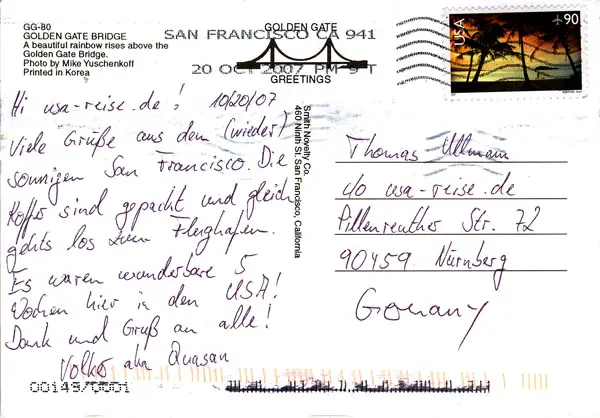 GG-80
GOLDEN GATE BRIDGE
A beautiful rainbow rises above the
Golden Gate Bridge.
Photo by Mike Yuschenkoff
Printed in Korea
GOLDEN GATE
GREETINGS
SAN FRANCISCO CA 941
20 OCT 2007 PM 9 T
USA
90
Hi usa-reise.de! 10/20/07
Viele Grüße aus dem (wieder)
sonnigen San Francisco. Die
Koffer sind gepackt und gleich
gehts los zum Flughafen.
Es waren wunderbare 5
Wochen hier in den USA!
Dank und Gruß an alle!
Volker aka Quasan
Smith Novelty Co.
460 Ninth St. San Francisco, California
Thomas Ullmann
c/o usa-reise.de
Pillenreuther Str. 72
90459 Nürnberg
Germany
00149/0001